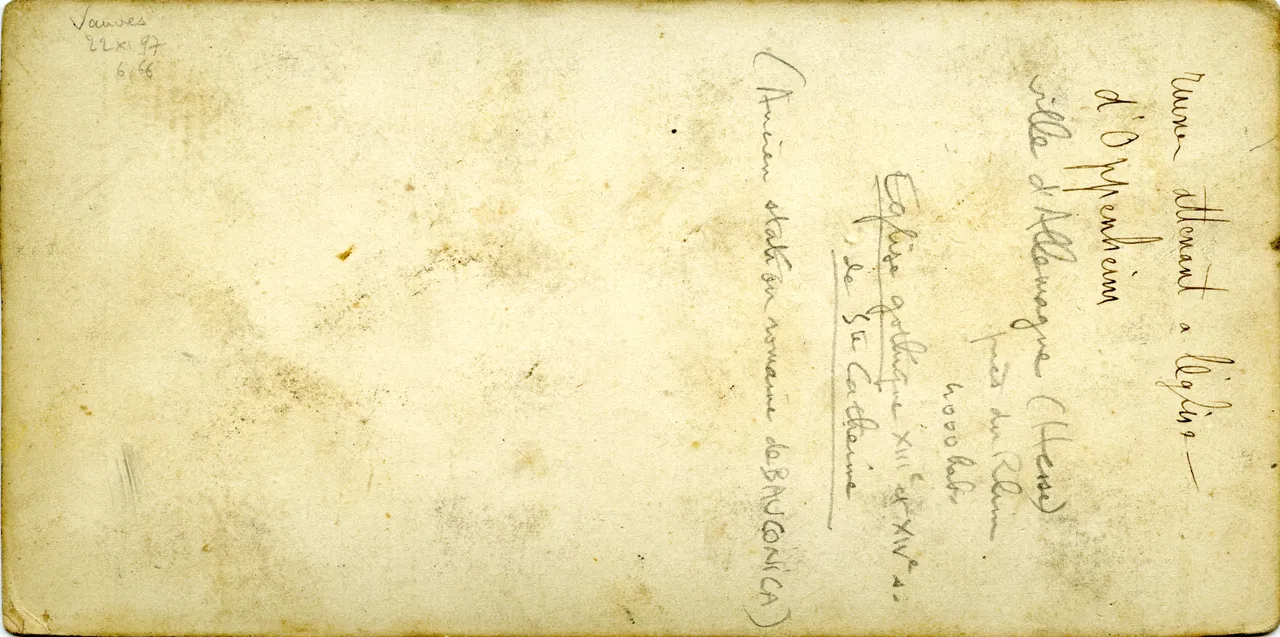 Vanves
22 XI 97
6,66
ruines attenant a l'église —
d'Oppenheim
ville d'Allemagne (Hesse)
près du Rhin
4000 hab.
Eglise gothique XIIIe et XIVe s.
de Ste Catherine
(Ancien station romaine de BAUCONICA)